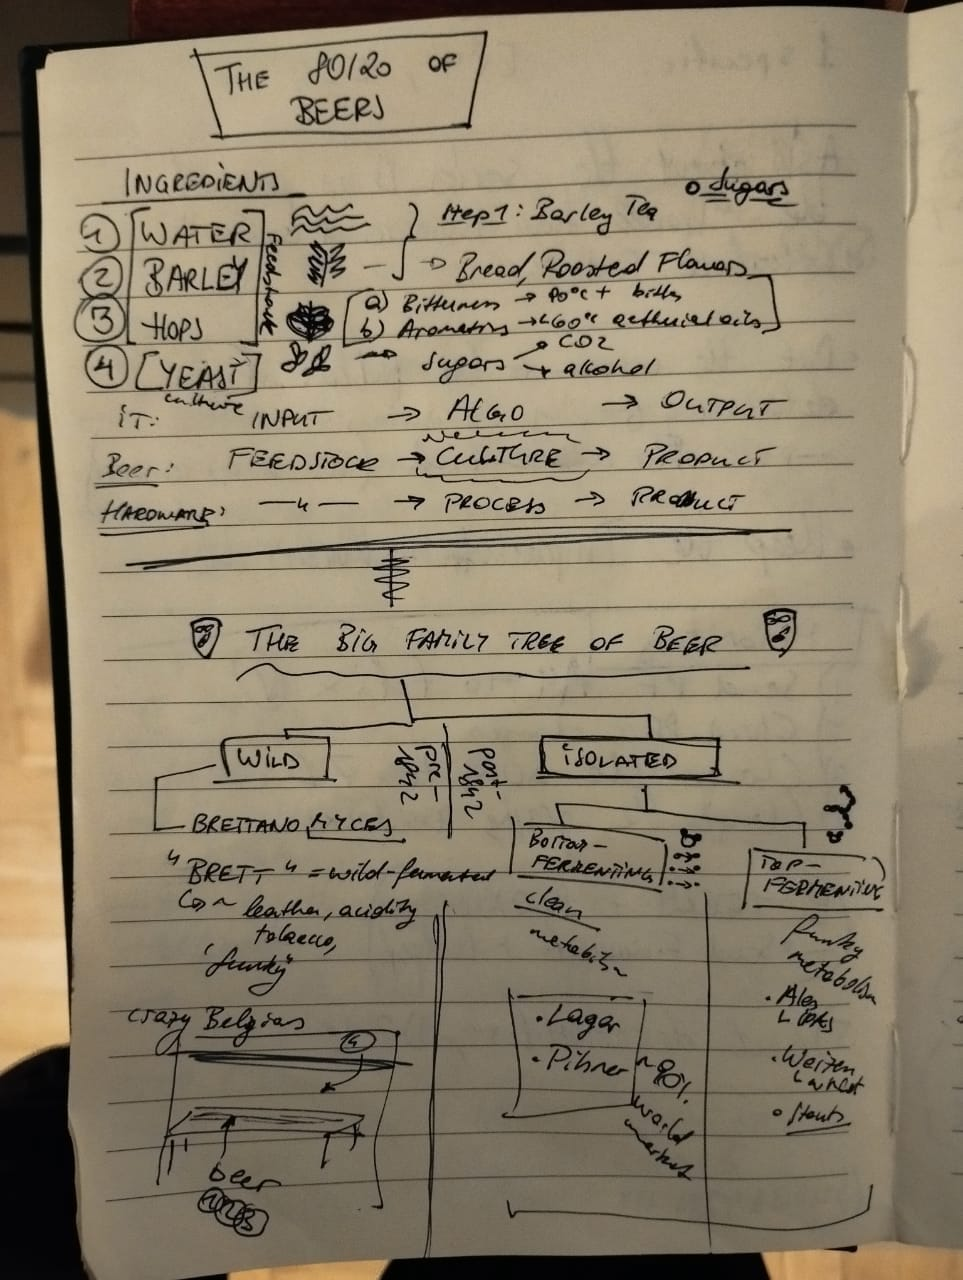 THE 80/20 OF
BEERS
INGREDIENTS
o Sugars
① [WATER] Step 1: Barley Tea
② BARLEY → Bread, Roasted Flavors
Feedstock
③ HOPS a) Bitterness → 90°C +
b) Aromatics → <60°C oils
④ [YEAST] → sugars → CO2
→ alkohol
culture
iT: INPUT → ALGO → OUTPUT
Beer: FEEDSTOCK → CULTURE → PRODUCT
HARDWARE: —"— → PROCESS → PRODUCT
THE BIG FAMILY TREE OF BEER
WILD
pre-
1842
post-
1842
ISOLATED
BRETTANOMYCES
"BRETT" = wild-fermented
~ leather, acidity
tobacco,
"funky"
crazy Belgias
4
beer
①②③
BOTTOM-
FERMENTING
clean
metabolism
• Lager
• Pilsner
~90%
world
market
?
TOP-
FERMENTING
funky
metabolism
• Ales
• Weizen
• Stouts